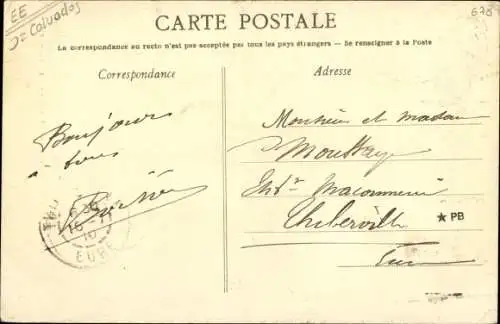 EE
Calvados
678
CARTE POSTALE
La correspondance au recto n'est pas acceptée par tous les pays étrangers — Se renseigner à la Poste
Correspondance
Adresse
Bonjours
à tous
Monsieur et madam
Entr Maconnerie
Thiberville
Eure
★ PB
EURE